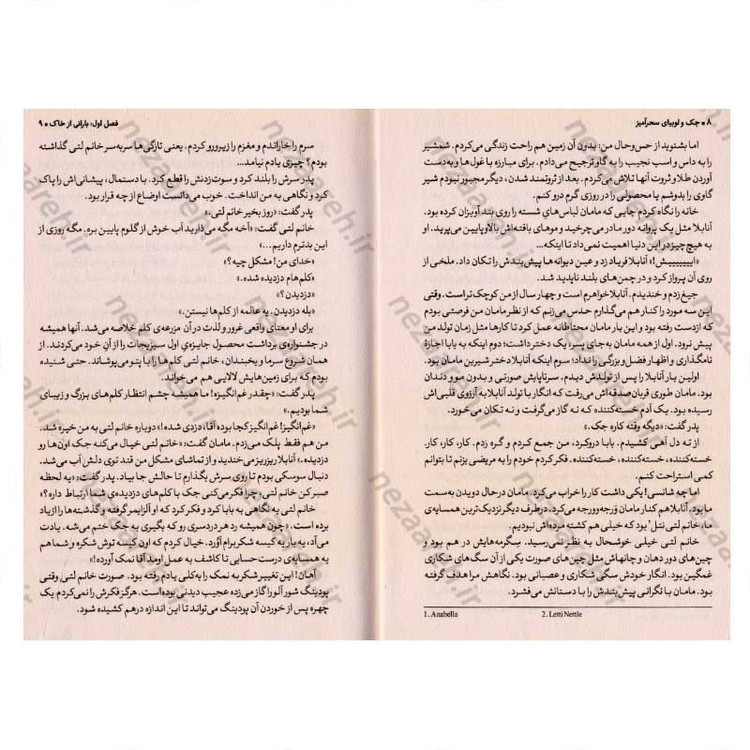 ۸ * جک و لوبیای سحرآمیز
اما بشنوید از حس‌وحال من: بدون آن زمین هم راحت زندگی می‌کردم. شمشیر
را به داس و اسب نجیب را به گاو ترجیح می‌دادم. برای مبارزه با غول‌ها و به‌دست
آوردن طلا و ثروت آنها تلاش می‌کردم. بعد از ثروتمند شدن، دیگر مجبور نبودم شیر
گاوی را بدوشم یا محصولی را در روزی گرم درو کنم.
خانه را نگاه کردم جایی که مامان لباس‌های شسته را روی بند آویزان کرده بود.
آنابلا مثل یک پروانه دور مادر می‌چرخید و موهای بافته‌اش بالاوپایین می‌پرید. او
به هیچ چیز در این دنیا اهمیت نمی‌داد تا اینکه...
فریاد زد و عین دیوانه‌ها پیش‌بندش را تکان داد. ملخی از
روی آن پرواز کرد و در چمن‌های بلند ناپدید شد.
جیغ زدم و خندیدم. آنابلا خواهرم است و چهار سال از من کوچک‌تر است. وقتی
این سه مورد را کنار هم می‌گذارم حدس می‌زنم که از نظر مامان من فرصتی بودم
که ازدست رفته بود و این بار مامان محتاطانه عمل کرد تا کارها مثل زمان تولد من
پیش نرود. اول از همه مامان به‌جای پسر، یک دختر داشت؛ دوم اینکه به بابا اجازهٔ
نامگذاری و اظهار فضل و بزرگی را نداد؛ سوم اینکه آنابلا دختر شیرین مامان بود.
اولین بار آنابلا را پس از تولدش دیدم. سرتاپایش صورتی و بدون مو و دندان
بود. مامان طوری قربان‌صدقه‌اش می‌رفت که انگار با تولد آنابلا به آرزوی قلبی‌اش
رسیده بود. یک آدم خسته‌کننده که نه گاز می‌گرفت و نه تکان می‌خورد.
پدر گفت: «دیگه وقته کاره جک.»
از ته دل آهی کشیدم. بابا درو کرد، من جمع کردم و گره زدم. کار، کار، کار.
خسته‌کننده، خسته‌کننده، خسته‌کننده. فکر کردم خودم را به مریضی بزنم تا بتوانم
کمی استراحت کنم.
اما چه شانسی! یکی داشت کار را خراب می‌کرد. مامان درحال دویدن به‌سمت
ما بود. آنابلا هم کنار مامان وَرجه‌ووَرجه می‌کرد. درطرف دیگر نزدیک‌ترین همسایه‌ی
ما، خانم لتی نتل² بود که خیلی هم کشته مرده‌اش نبودیم.
خانم لتی خیلی خوشحال به نظر نمی‌رسید. سگرمه‌هایش در هم بود و
چین‌های دور دهان و چانه‌اش مثل چین‌های صورت یکی از آن سگ‌های شکاری
غمگین بود. انگار خودش سگی شکاری و عصبانی بود. نگاهش مرا هدف گرفته
بود. مامان با نگرانی پیش‌بندش را با دستانش می‌فشرد.
1. Anabella 2. Letti Nettle
فصل اول: بارانی از خاک * ۹
سرم را خاراندم و مغزم را زیرورو کردم. یعنی تازگی‌ها سربه‌سر خانم لتی گذاشته
بودم؟ چیزی یادم نیامد...
پدر سرش را بلند کرد و سوت‌زدنش را قطع کرد. با دستمال، پیشانی‌اش را پاک
کرد و نگاهی به من انداخت. خوب می‌دانست اوضاع از چه قرار بود.
پدر گفت: «روز بخیر خانم لتی.»
خانم لتی گفت: «آخه مگه می‌ذارید آب خوش از گلوم پایین بره. مگه روزی از
این بدترم داریم...»
«خدای من! مشکل چیه؟»
«کلم‌هام دزدیده شده.»
«دزدیدن؟»
«بله دزدیدن. یه عالمه از کلم‌ها نیستن.»
برای او معنای واقعی غرور و لذت در آن مزرعه‌ی کلم خلاصه می‌شد. آنها همیشه
در جشنواره‌ی برداشت محصول جایزه‌ی اول سبزیجات را از آنِ خود می‌کردند. از
همان شروع سرما و یخبندان، خانم لتی کلم‌ها را با پتو می‌پوشاند. حتی شنیده
بودم که برای زمین‌هایش لالایی هم می‌خواند.
پدر گفت: «چقدر غم‌انگیز! ما همیشه چشم انتظار کلم‌های بزرگ و زیبای
شما بودیم.»
«غم‌انگیز! غم‌انگیز کجا بوده آقا، دزدی شده!» دوباره خانم لتی به من خیره شد.
من هم فقط پلک می‌زدم. مامان گفت: «خانم لتی خیال می‌کنه جک اون‌ها رو
دزدیده.» آنابلا ریزریز می‌خندید و از تماشای مشکل من قند توی دلش آب می‌شد.
دنبال سوسکی بودم تا روی سرش بگذارم تا حالش جا بیاد. پدر گفت: «یه لحظه
صبر کن خانم لتی، چرا فکر می‌کنی جک با کلم‌های دزدیده‌ی شما ارتباط داره؟»
خانم لتی یه نگاهی به بابا کرد و فکر کرد که او آلزایمر گرفته و گذشته‌ها را از یاد
برده است. «چون همیشه رد هر دردسری رو که بگیری به جک ختم می‌شه. یادت
می‌آد، یه بار یه کیسه شکر براتون آوُرد. خیال کردم که اون کیسه توش شکره و شما هم
یه همسایه‌ی درست‌حسابی تا کاشف به عمل اومد آقا نمک آورده!»
آهان! این تغییر شکر به نمک را به‌کلی یادم رفته بود. صورت خانم لتی وقتی
پودینگ شور آلو را گاز می‌زده عجیب دیدنی بوده است. هرگز فکرش را نمی‌کردم یک
چهره پس از خوردن آن پودینگ می‌تواند تا این اندازه درهم کشیده شود.
nezaareh.ir